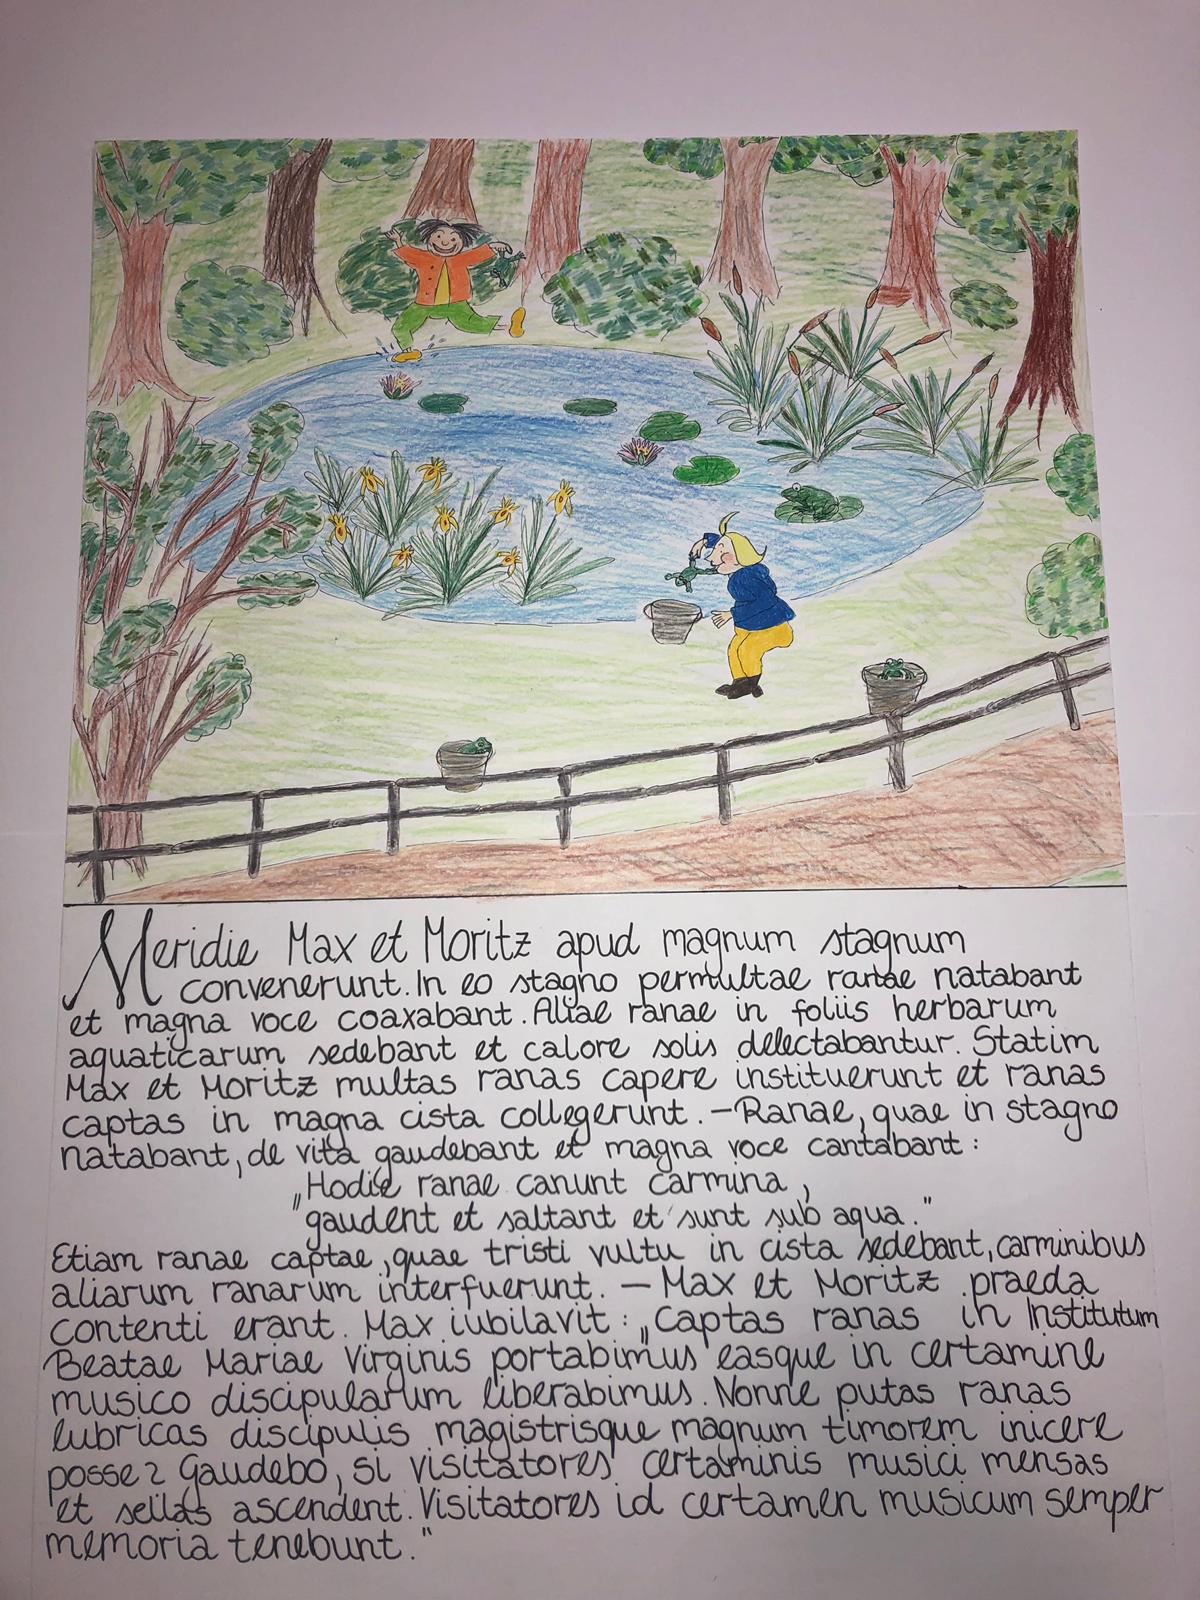 Meridie Max et Moritz apud magnum stagnum
convenerunt. In eo stagno permultae ranae natabant
et magna voce coaxabant. Aliae ranae in foliis herbarum
aquaticarum sedebant et calore solis delectabantur. Statim
Max et Moritz multas ranas capere instituerunt et ranas
captas in magna cista collegerunt. – Ranae, quae in stagno
natabant, de vita gaudebant et magna voce cantabant:
„Hodie ranae canunt carmina,
gaudent et saltant et sunt sub aqua."
Etiam ranae captae, quae tristi vultu in cista sedebant, carminibus
aliarum ranarum interfuerunt. – Max et Moritz praeda
contenti erant. Max iubilavit: „Captas ranas in Institutum
Beatae Mariae Virginis portabimus easque in certamine
musico discipularum liberabimus. Nonne putas ranas
lubricas discipulis magistrisque magnum timorem inicere
posse? Gaudebo, si visitatores certaminis musici mensas
et sellas ascendent. Visitatores id certamen musicum semper
memoria tenebunt."